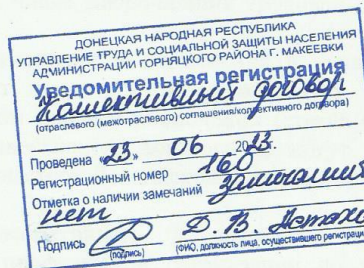 ДОНЕЦКАЯ НАРОДНАЯ РЕСПУБЛИКА
УПРАВЛЕНИЕ ТРУДА И СОЦИАЛЬНОЙ ЗАЩИТЫ НАСЕЛЕНИЯ
АДМИНИСТРАЦИИ ГОРНЯЦКОГО РАЙОНА Г. МАКЕЕВКИ
Уведомительная регистрация
Коллективный договор
(отраслевого (межотраслевого) соглашения/коллективного договора)
Проведена «23» 06 2023г.
Регистрационный номер 160
Отметка о наличии замечаний замечаний
нет
Подпись Д. В.
(подпись) (ФИО, должность лица, осуществившего регистрац